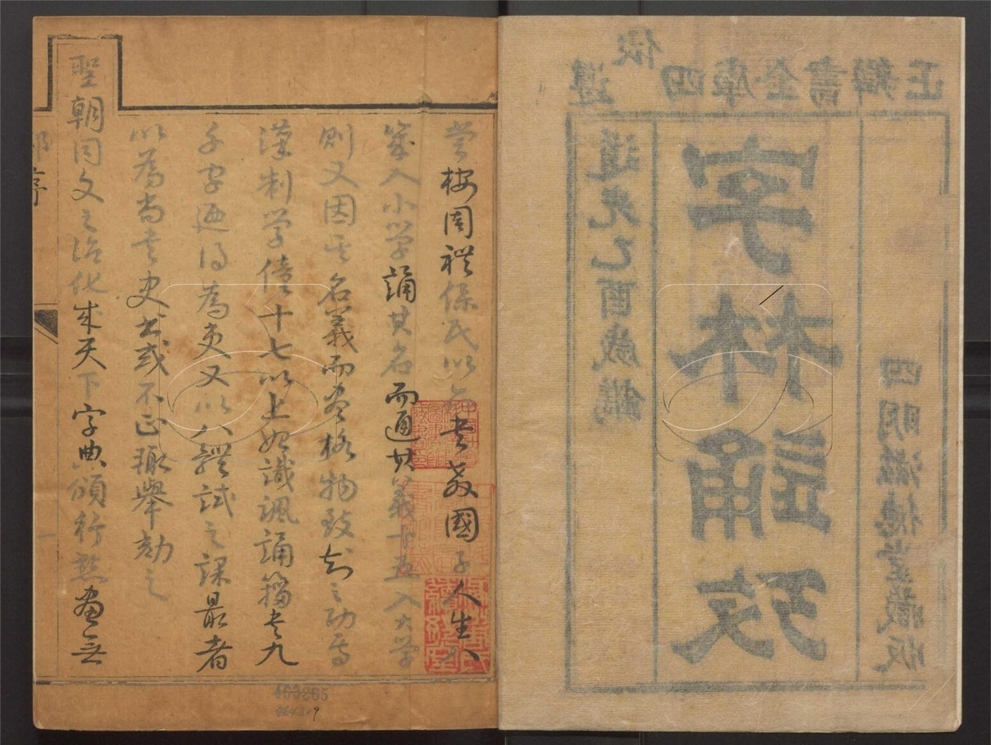 遵依四庫全書辨正
道光乙酉歲鐫
字林誦攷
四明滋德堂藏版
嘗按周禮保氏以六書教國子人生八
歲入小學誦其名而通其義十五入大學
則又因其名義而盡格物致知之功焉
漢制學僮十七以上始識諷誦籀書九
千字迺得為吏又以八體試之課最者
以為尚書史書或不正輒舉劾之
聖朝同文之治化成天下字典頒行點畫無
序
403265